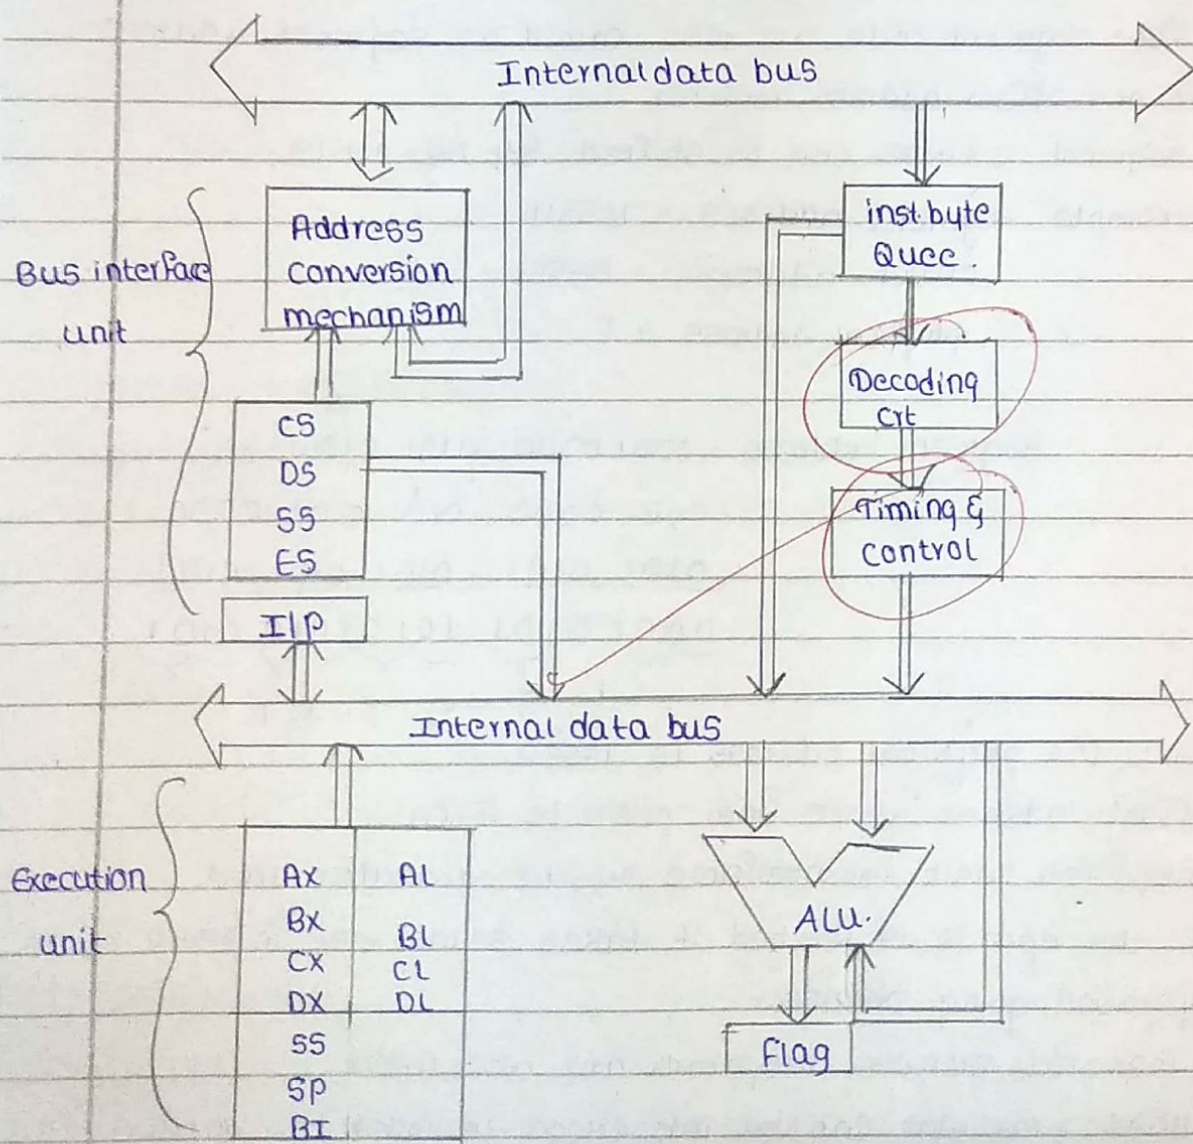 Internal data bus
Bus interface
unit
Address
conversion
mechanism
inst. byte
Quee.
Decoding
crt
CS
DS
SS
ES
Timing &
control
I/P
Internal data bus
Execution
unit
AX AL
BX BL
CX CL
DX DL
SS
SP
BI
ALU.
Flag